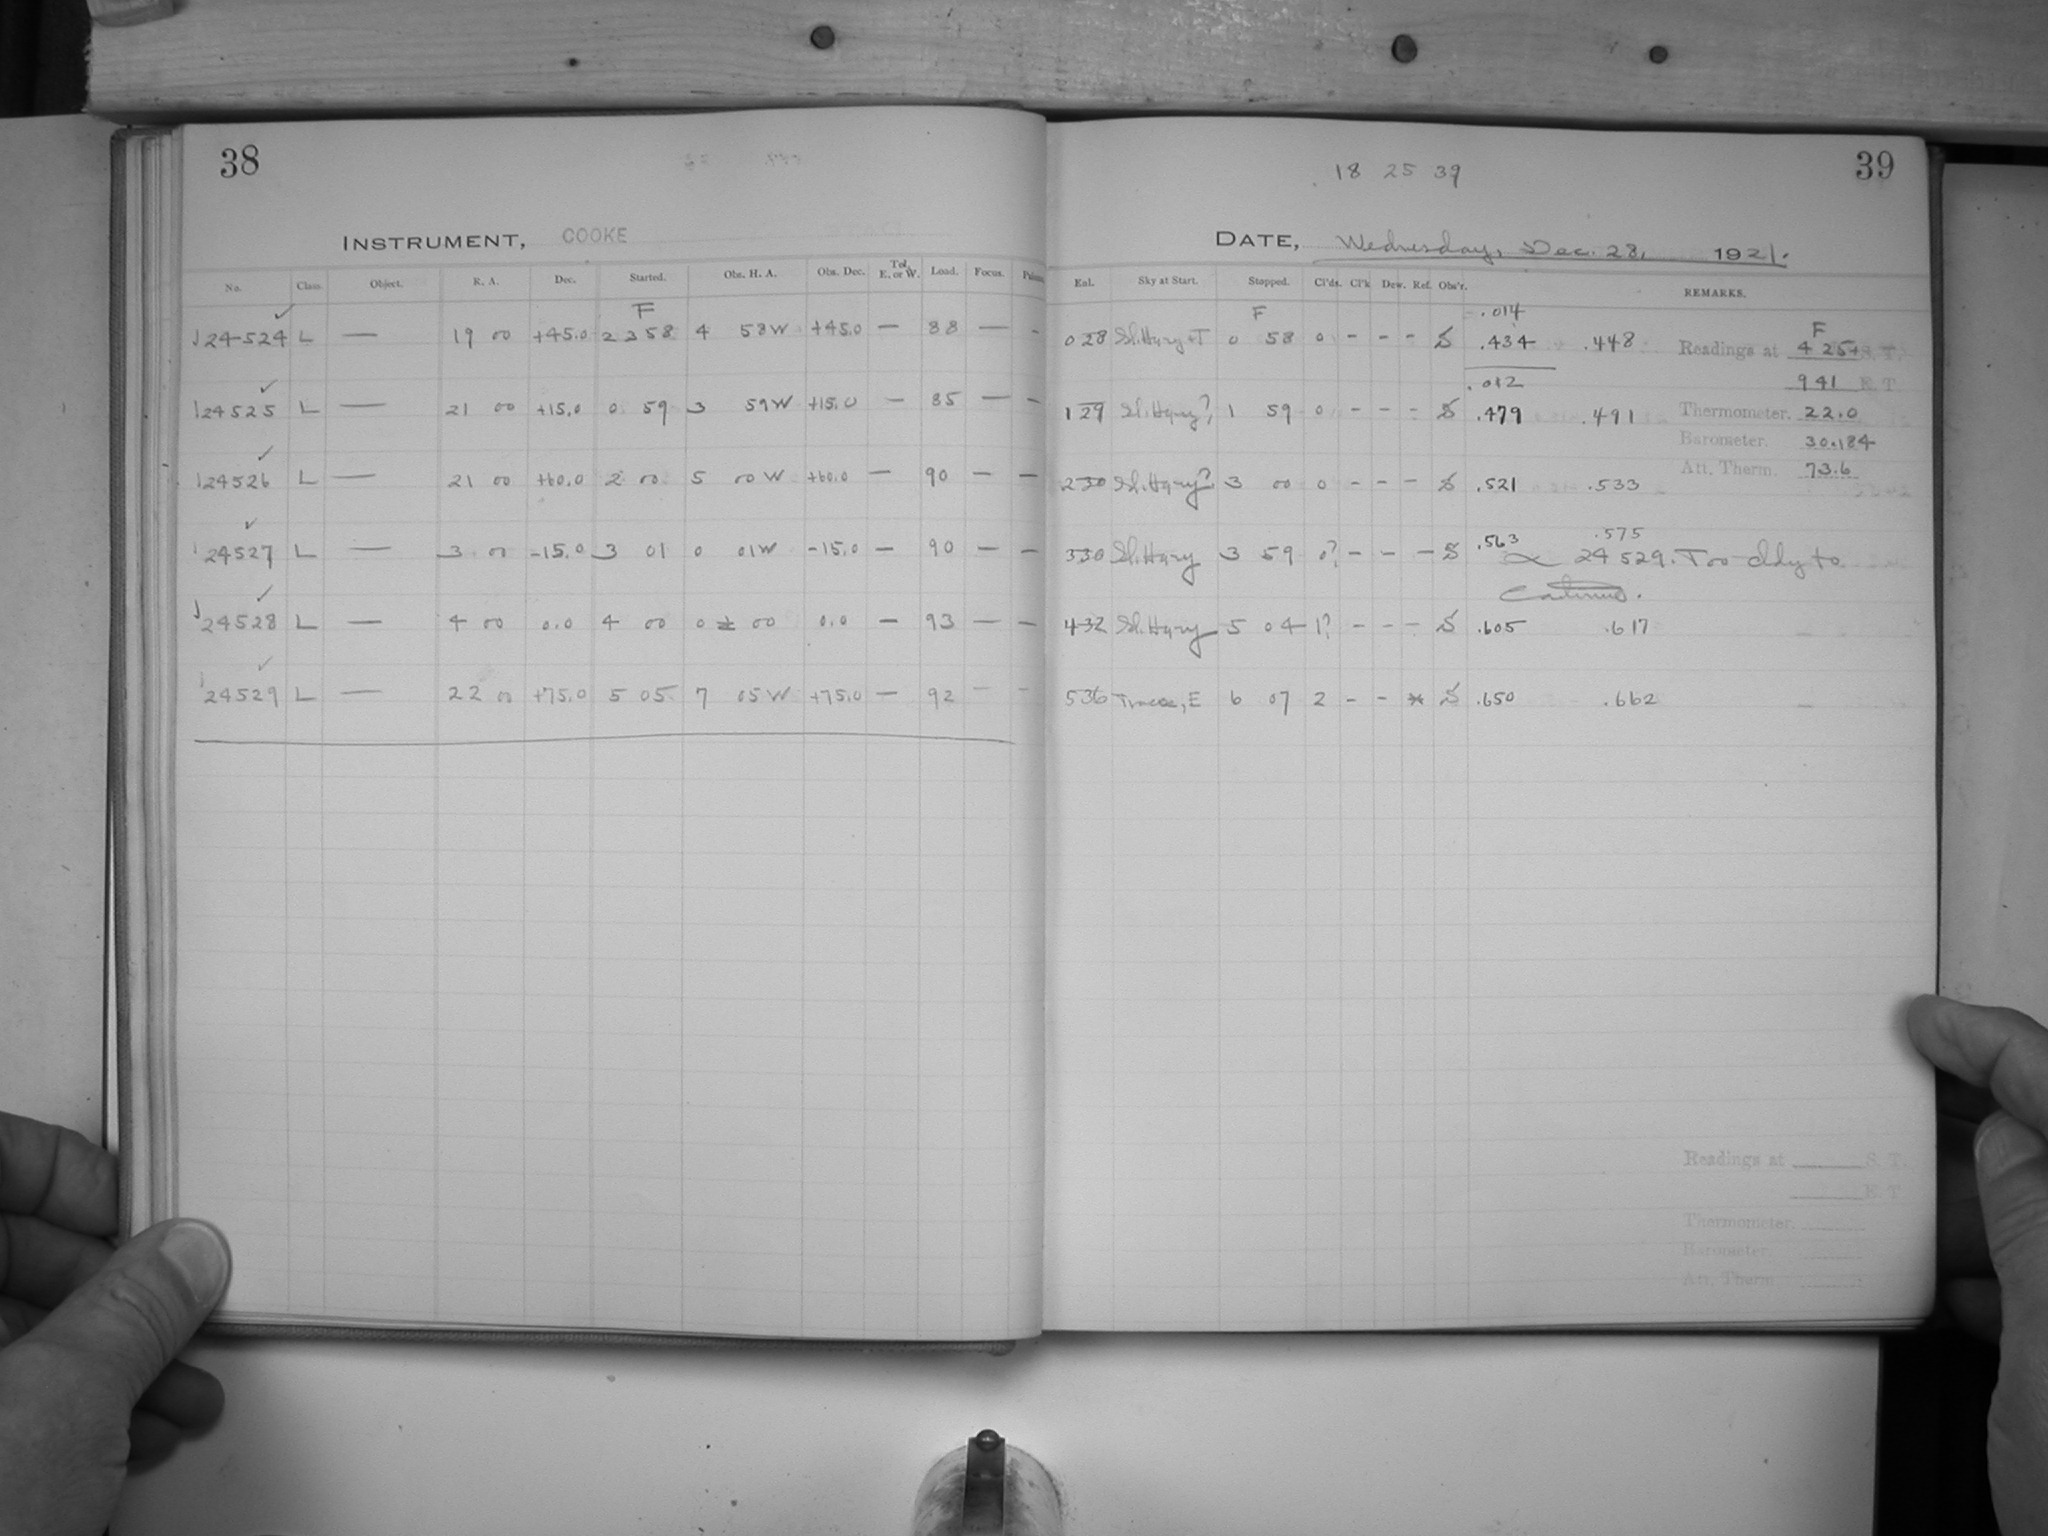 38
INSTRUMENT, COOKE
No. Class. Object. R. A. Dec. Started. Obs. H. A. Obs. Dec. Tel. E. or W. Load. Focus.
F
✓
124524 L — 19 00 +45.0 23 58 4 58W +45.0 — 88 — -
✓
124525 L — 21 00 +15.0 0 59 3 59W +15.0 — 85 — -
✓
124526 L — 21 00 +60.0 2 00 5 00W +60.0 — 90 — -
✓
124527 L — 3 00 -15.0 3 01 0 01W -15.0 — 90 — -
✓
24528 L — 4 00 0.0 4 00 0 00 0.0 — 93 — -
✓
24529 L — 22 00 +75.0 5 05 7 05W +75.0 — 92 - -
39
18 25 39
DATE, Wednesday, Dec. 28, 1921.
Eal. Sky at Start. Stopped. Cl'ds. Cl'k Dew. Ref. Obs'r. REMARKS.
F .014
0 28 Sl. Hazy + T 0 58 0 - - - S .434 .448
.012
1 29 Sl. Hazy?, 1 59 0 - - - S .479 .491
2 30 Sl. Hazy? 3 00 0 - - - S .521 .533
.575
3 30 Sl. Hazy 3 59 0? - - - S .563 24529. Too cldy to
continue.
4 32 Sl. Hazy 5 04 1? - - - S .605 .617
5 36 Traces, E 6 07 2 - - * S .650 .662
F
Readings at 4 25+ S. T.
9 41 E. T.
Thermometer. 22.0
Barometer. 30.184
Att. Therm. 73.6
Readings at S. T.
E. T.
Thermometer.
Barometer.
Att. Therm